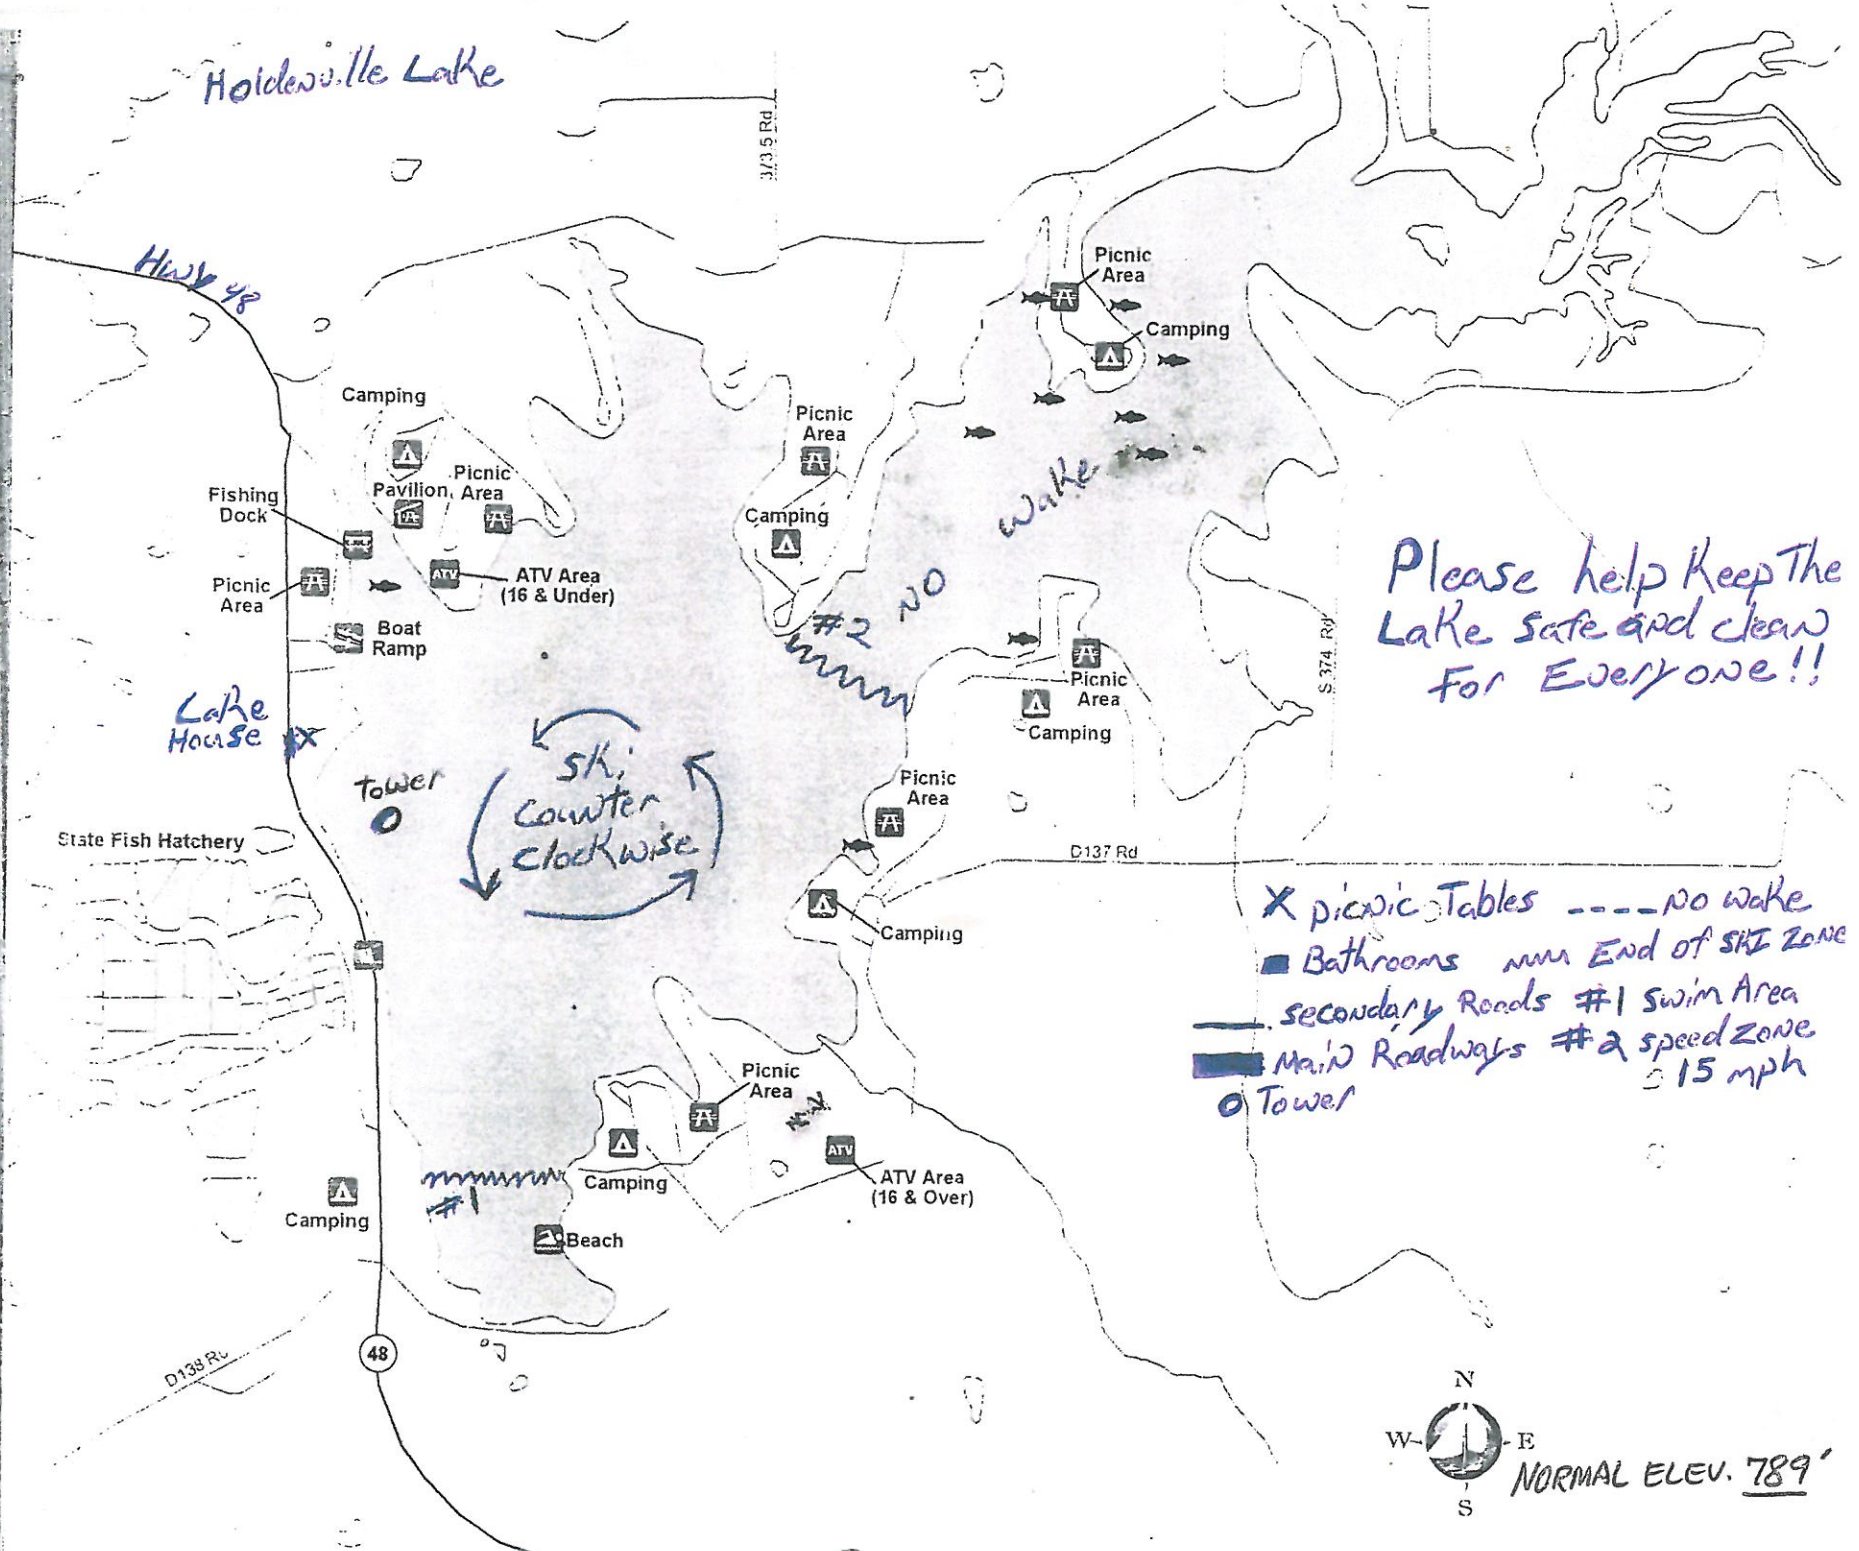 Holdenville Lake
373.5 Rd
Hwy 48
Picnic
Area
Camping
Camping
Picnic
Area
Picnic
Area
Pavilion
Fishing
Dock
Camping
Wake
NO
#2
ATV Area
(16 & Under)
Picnic
Area
Boat
Ramp
Please help Keep The
Lake safe and clean
For Everyone!!
S 374 Rd
Picnic
Area
Camping
Lake
House X
Tower
Ski
Counter
Clockwise
Picnic
Area
State Fish Hatchery
D137 Rd
Camping
X picnic Tables ---- No wake
Bathrooms End of SKI Zone
secondary Roads #1 Swim Area
Main Roadways #2 speed zone
15 mph
Tower
Picnic
Area
ATV
ATV
ATV Area
(16 & Over)
Camping
#1
Camping
Beach
48
D138 Rd
N
W
E
S
NORMAL ELEV. 789'